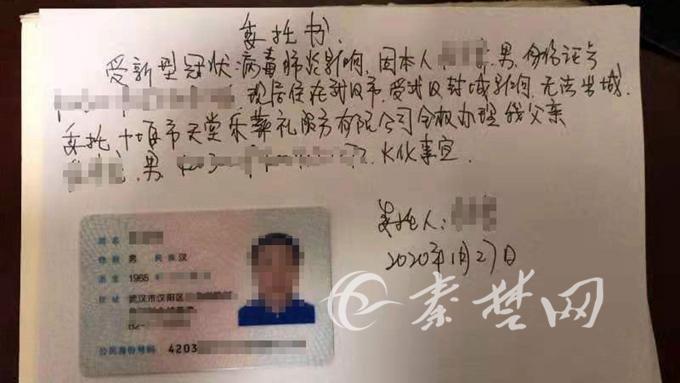 委托书
受新型冠状病毒肺炎影响,因本人 男,身份证号
现居住在武汉市,受武汉封城影响,无法出城.
委托十堰市天堂乐葬礼服务有限公司全权办理我父亲
男 火化事宜
委托人:
2020年1月27日
姓名
性别 男 民族 汉
出生 1965
住址 武汉市汉阳区
公民身份号码 4203
秦楚网